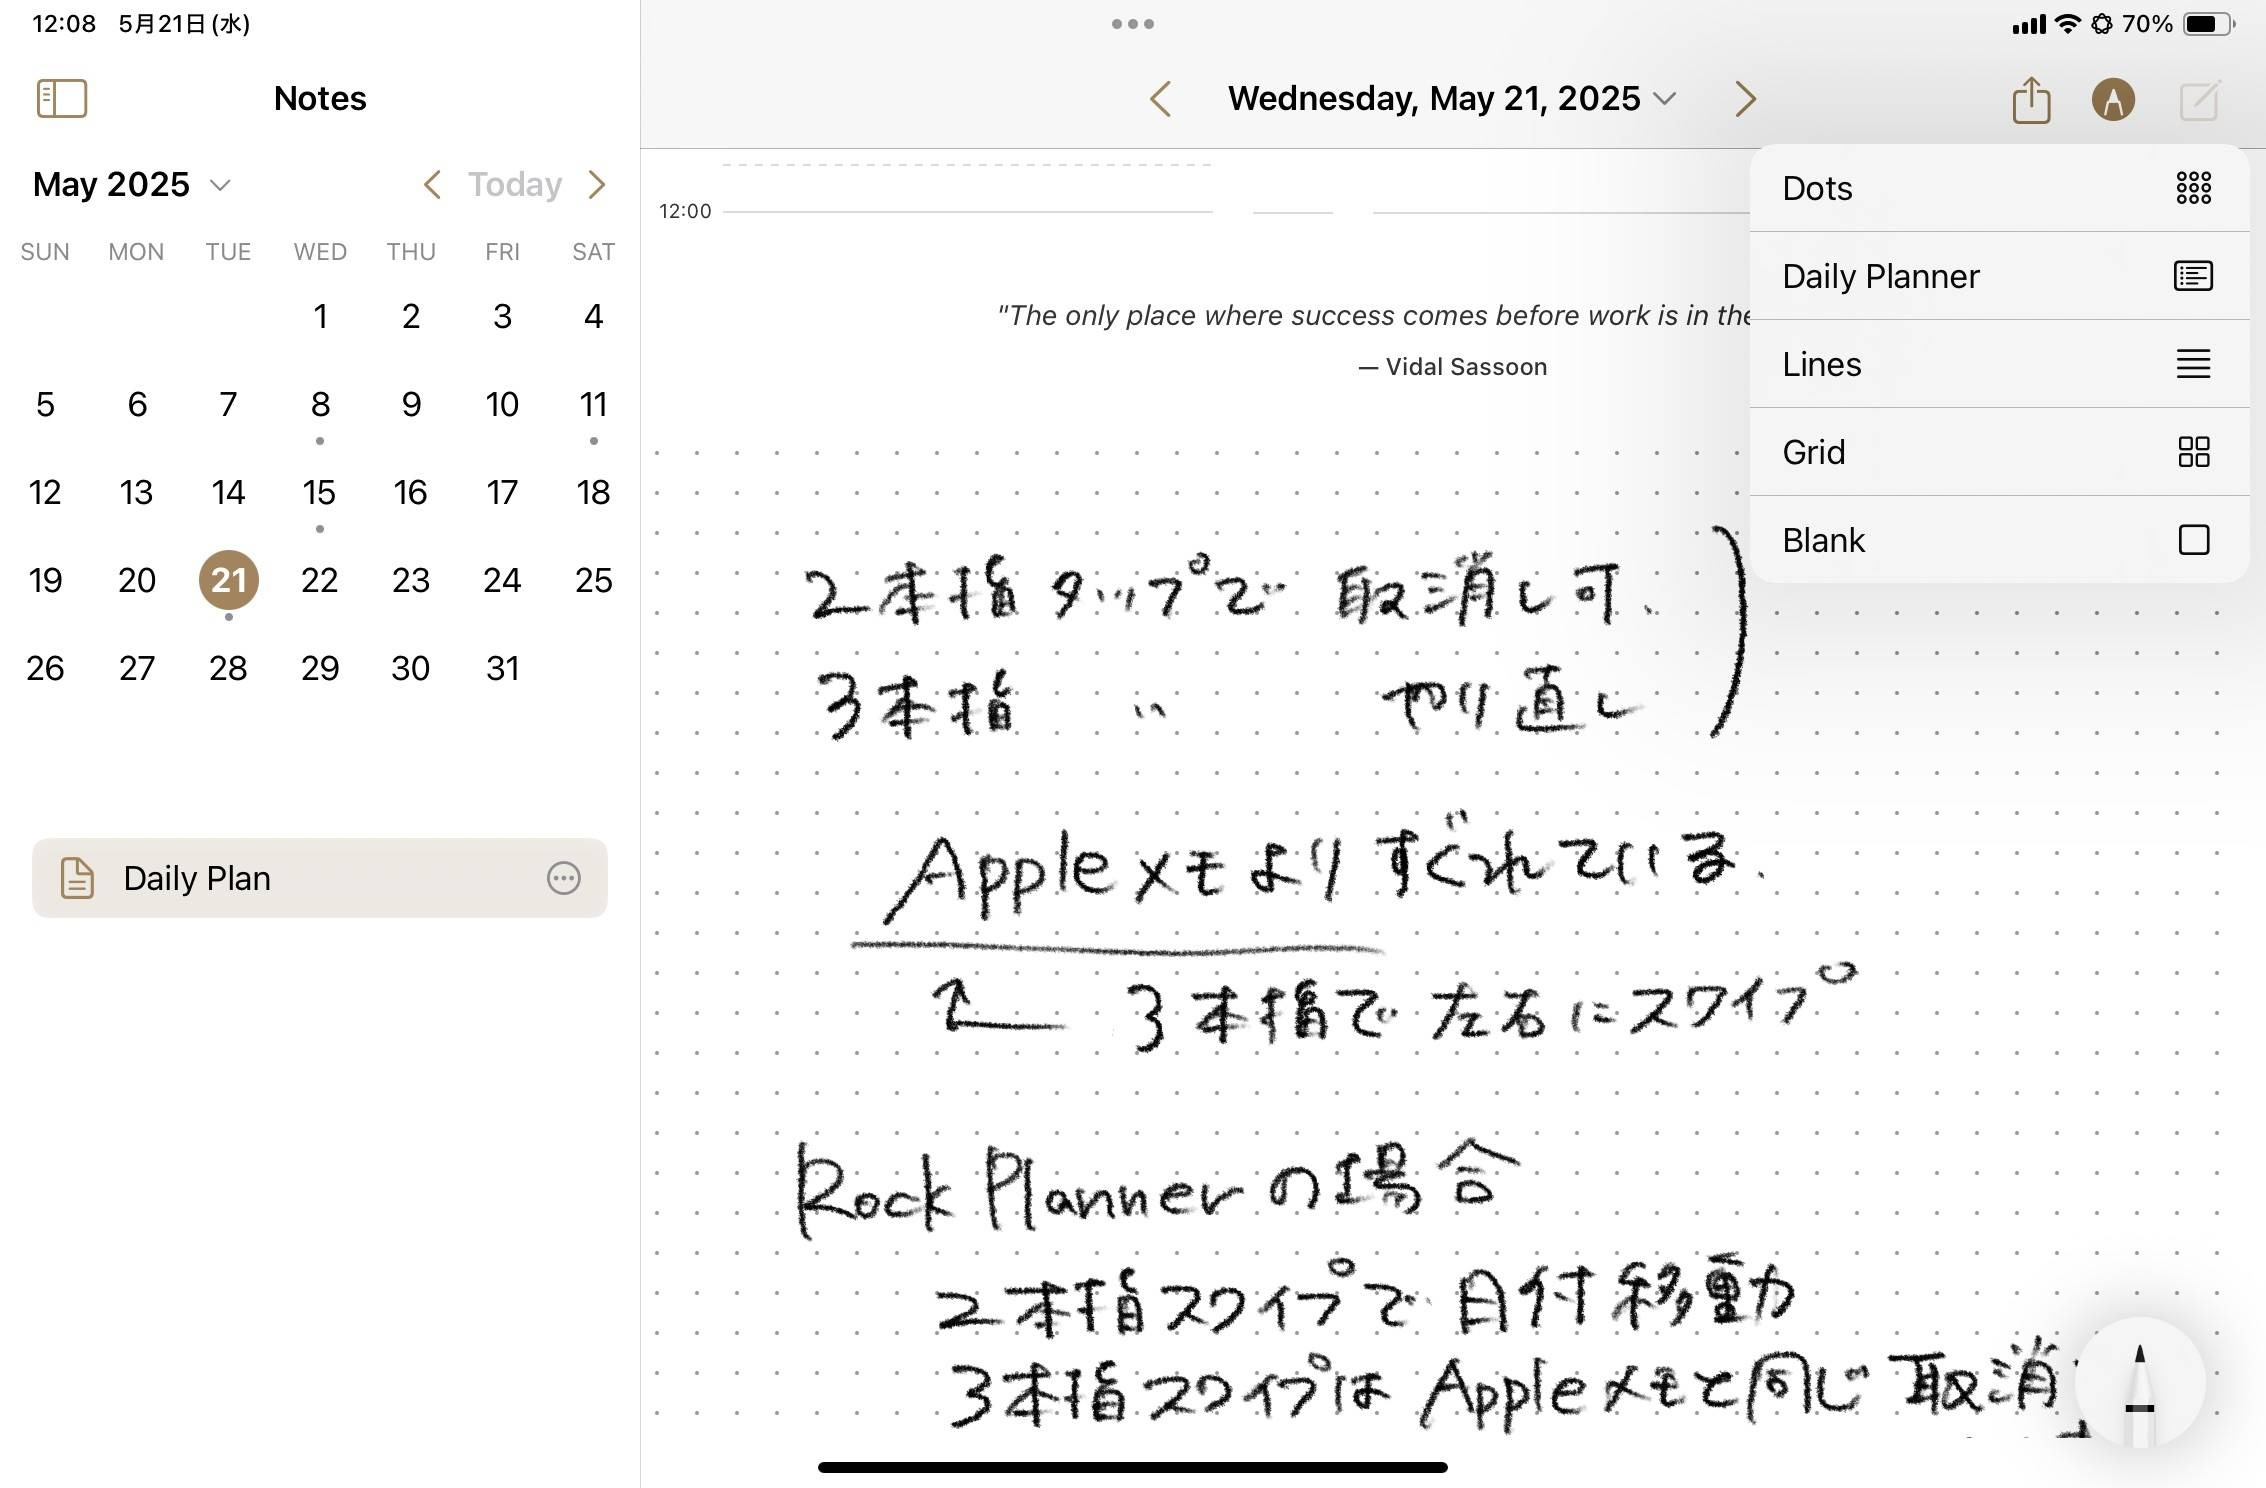 12:08 5月21日(水)
70%
Notes
Wednesday, May 21, 2025
May 2025
Today
SUN MON TUE WED THU FRI SAT
1 2 3 4
5 6 7 8 9 10 11
12 13 14 15 16 17 18
19 20 21 22 23 24 25
26 27 28 29 30 31
Daily Plan
12:00
"The only place where success comes before work is in the
— Vidal Sassoon
Dots
Daily Planner
Lines
Grid
Blank
2本指タップで 取消し可.
3本指 〃 やり直し
Appleメモよりすぐれている.
3本指で左右にスワイプ
Rock Plannerの場合
2本指スワイプで日付移動
3本指スワイプはAppleメモと同じ取消